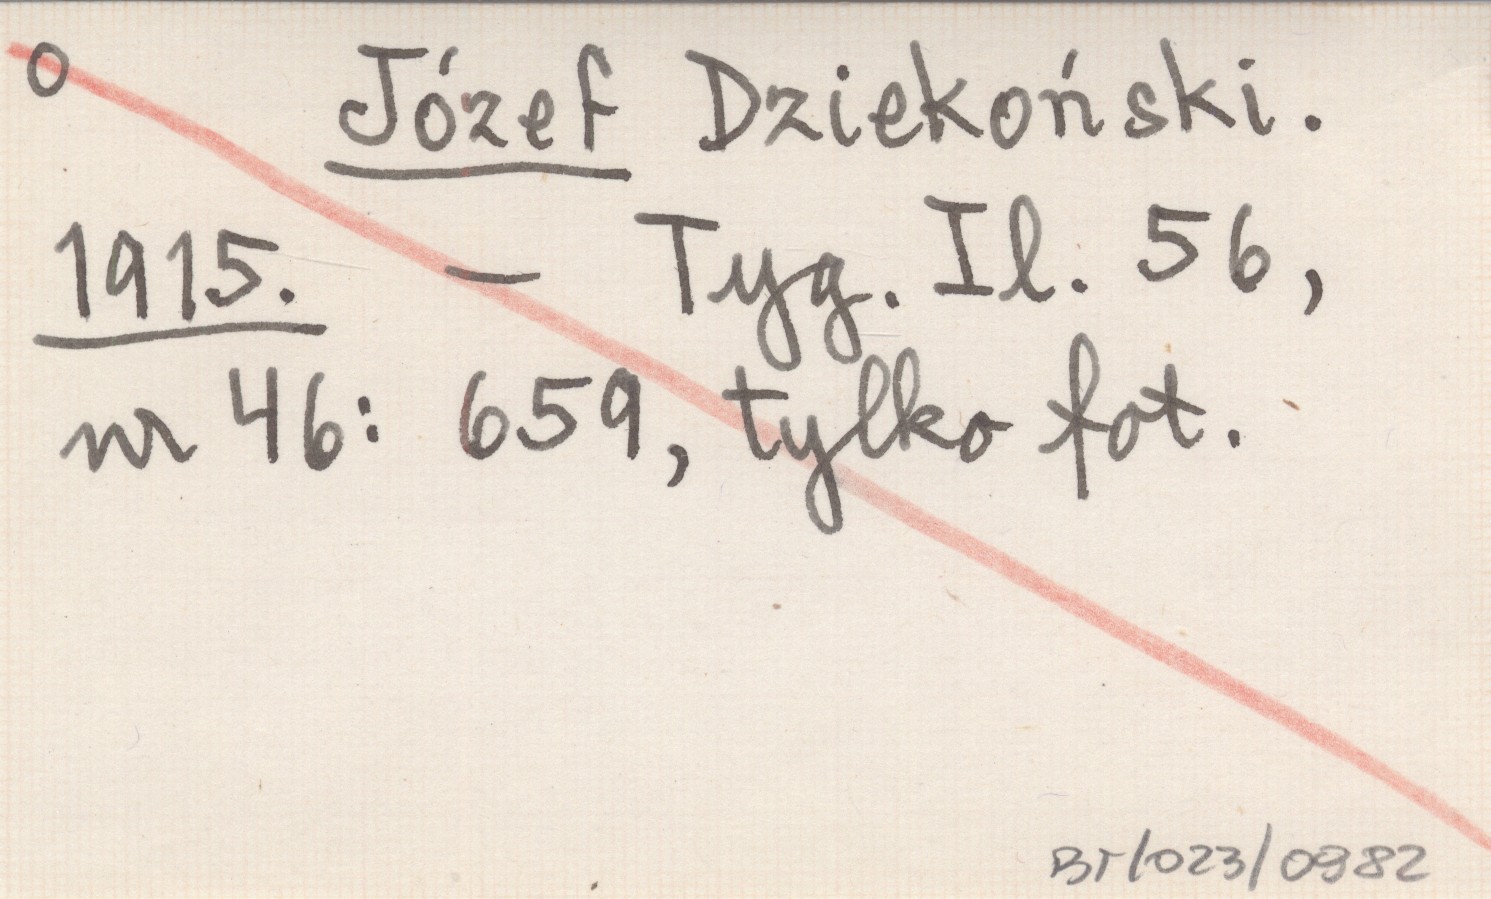 o Józef Dziekoński.
1915. — Tyg. Il. 56,
nr 46: 659, tylko fot.
BT/023/0982